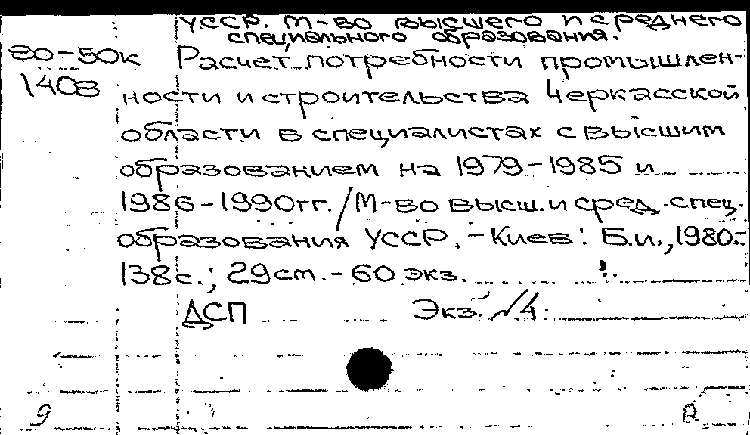 УССР. М-во высшего и среднего
специального образования.
80-50к Расчет потребности промышлен-
1408 ности и строительства Черкасской
области в специалистах с высшим
образованием на 1979-1985 и
1986-1990гг. / М-во высш. и сред. спец.
образования УССР. - Киев: Б.и., 1980.-
138с.; 29см. - 60 экз.
ДСП Экз. №4